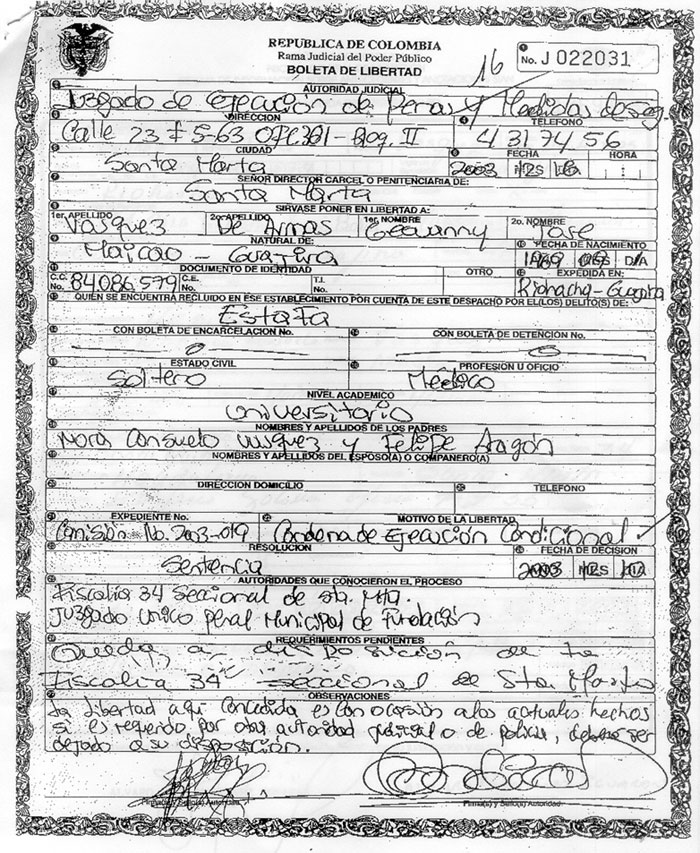 REPUBLICA DE COLOMBIA
Rama Judicial del Poder Público
BOLETA DE LIBERTAD
16
No. J 022031
AUTORIDAD JUDICIAL
Juzgado de Ejecución de Penas y Medidas de seg.
DIRECCION
TELEFONO
Calle 23 # 5-63 OFC 301 - Bloq. II
4317456
CIUDAD
FECHA
HORA
Santa Marta
2003
SEÑOR DIRECTOR CARCEL O PENITENCIARIA DE:
Santa Marta
SIRVASE PONER EN LIBERTAD A:
1er. APELLIDO
2o. APELLIDO
1er. NOMBRE
2o. NOMBRE
Vasquez
De Armas
Geovanny
Jose
NATURAL DE:
FECHA DE NACIMIENTO
Maicao - Guajira
1969
DIA
DOCUMENTO DE IDENTIDAD
OTRO
EXPEDIDA EN:
C.C. No. 84086579
C.E. No.
T.I. No.
Riohacha - Guajira
QUIEN SE ENCUENTRA RECLUIDO EN ESE ESTABLECIMIENTO POR CUENTA DE ESTE DESPACHO POR EL(LOS) DELITO(S) DE:
Estafa
CON BOLETA DE ENCARCELACION No.
CON BOLETA DE DETENCION No.
ESTADO CIVIL
PROFESION U OFICIO
Soltero
Médico
NIVEL ACADEMICO
Universitario
NOMBRES Y APELLIDOS DE LOS PADRES
Nora Consuelo Vasquez y Felipe Aragón
NOMBRES Y APELLIDOS DEL ESPOSO(A) O COMPAÑERO(A)
DIRECCION DOMICILIO
TELEFONO
EXPEDIENTE No.
MOTIVO DE LA LIBERTAD
Comisión No. 2003-019
Condena de Ejecución Condicional
RESOLUCION
FECHA DE DECISION
Sentencia
2003
AUTORIDADES QUE CONOCIERON EL PROCESO
Fiscalia 34 Seccional de Sta. Mta.
Juzgado Unico Penal Municipal de Fundación
REQUERIMIENTOS PENDIENTES
Queda a disposición de la
Fiscalia 34 seccional de Sta. Marta
OBSERVACIONES
La Libertad aqui concedida es con ocasión a los actuales hechos
si es requerido por otra autoridad judicial o de policia, deberá ser
dejado a su disposición.
Firma(s) y Sello(s) Autoridad
Firma(s) y Sello(s) Autoridad